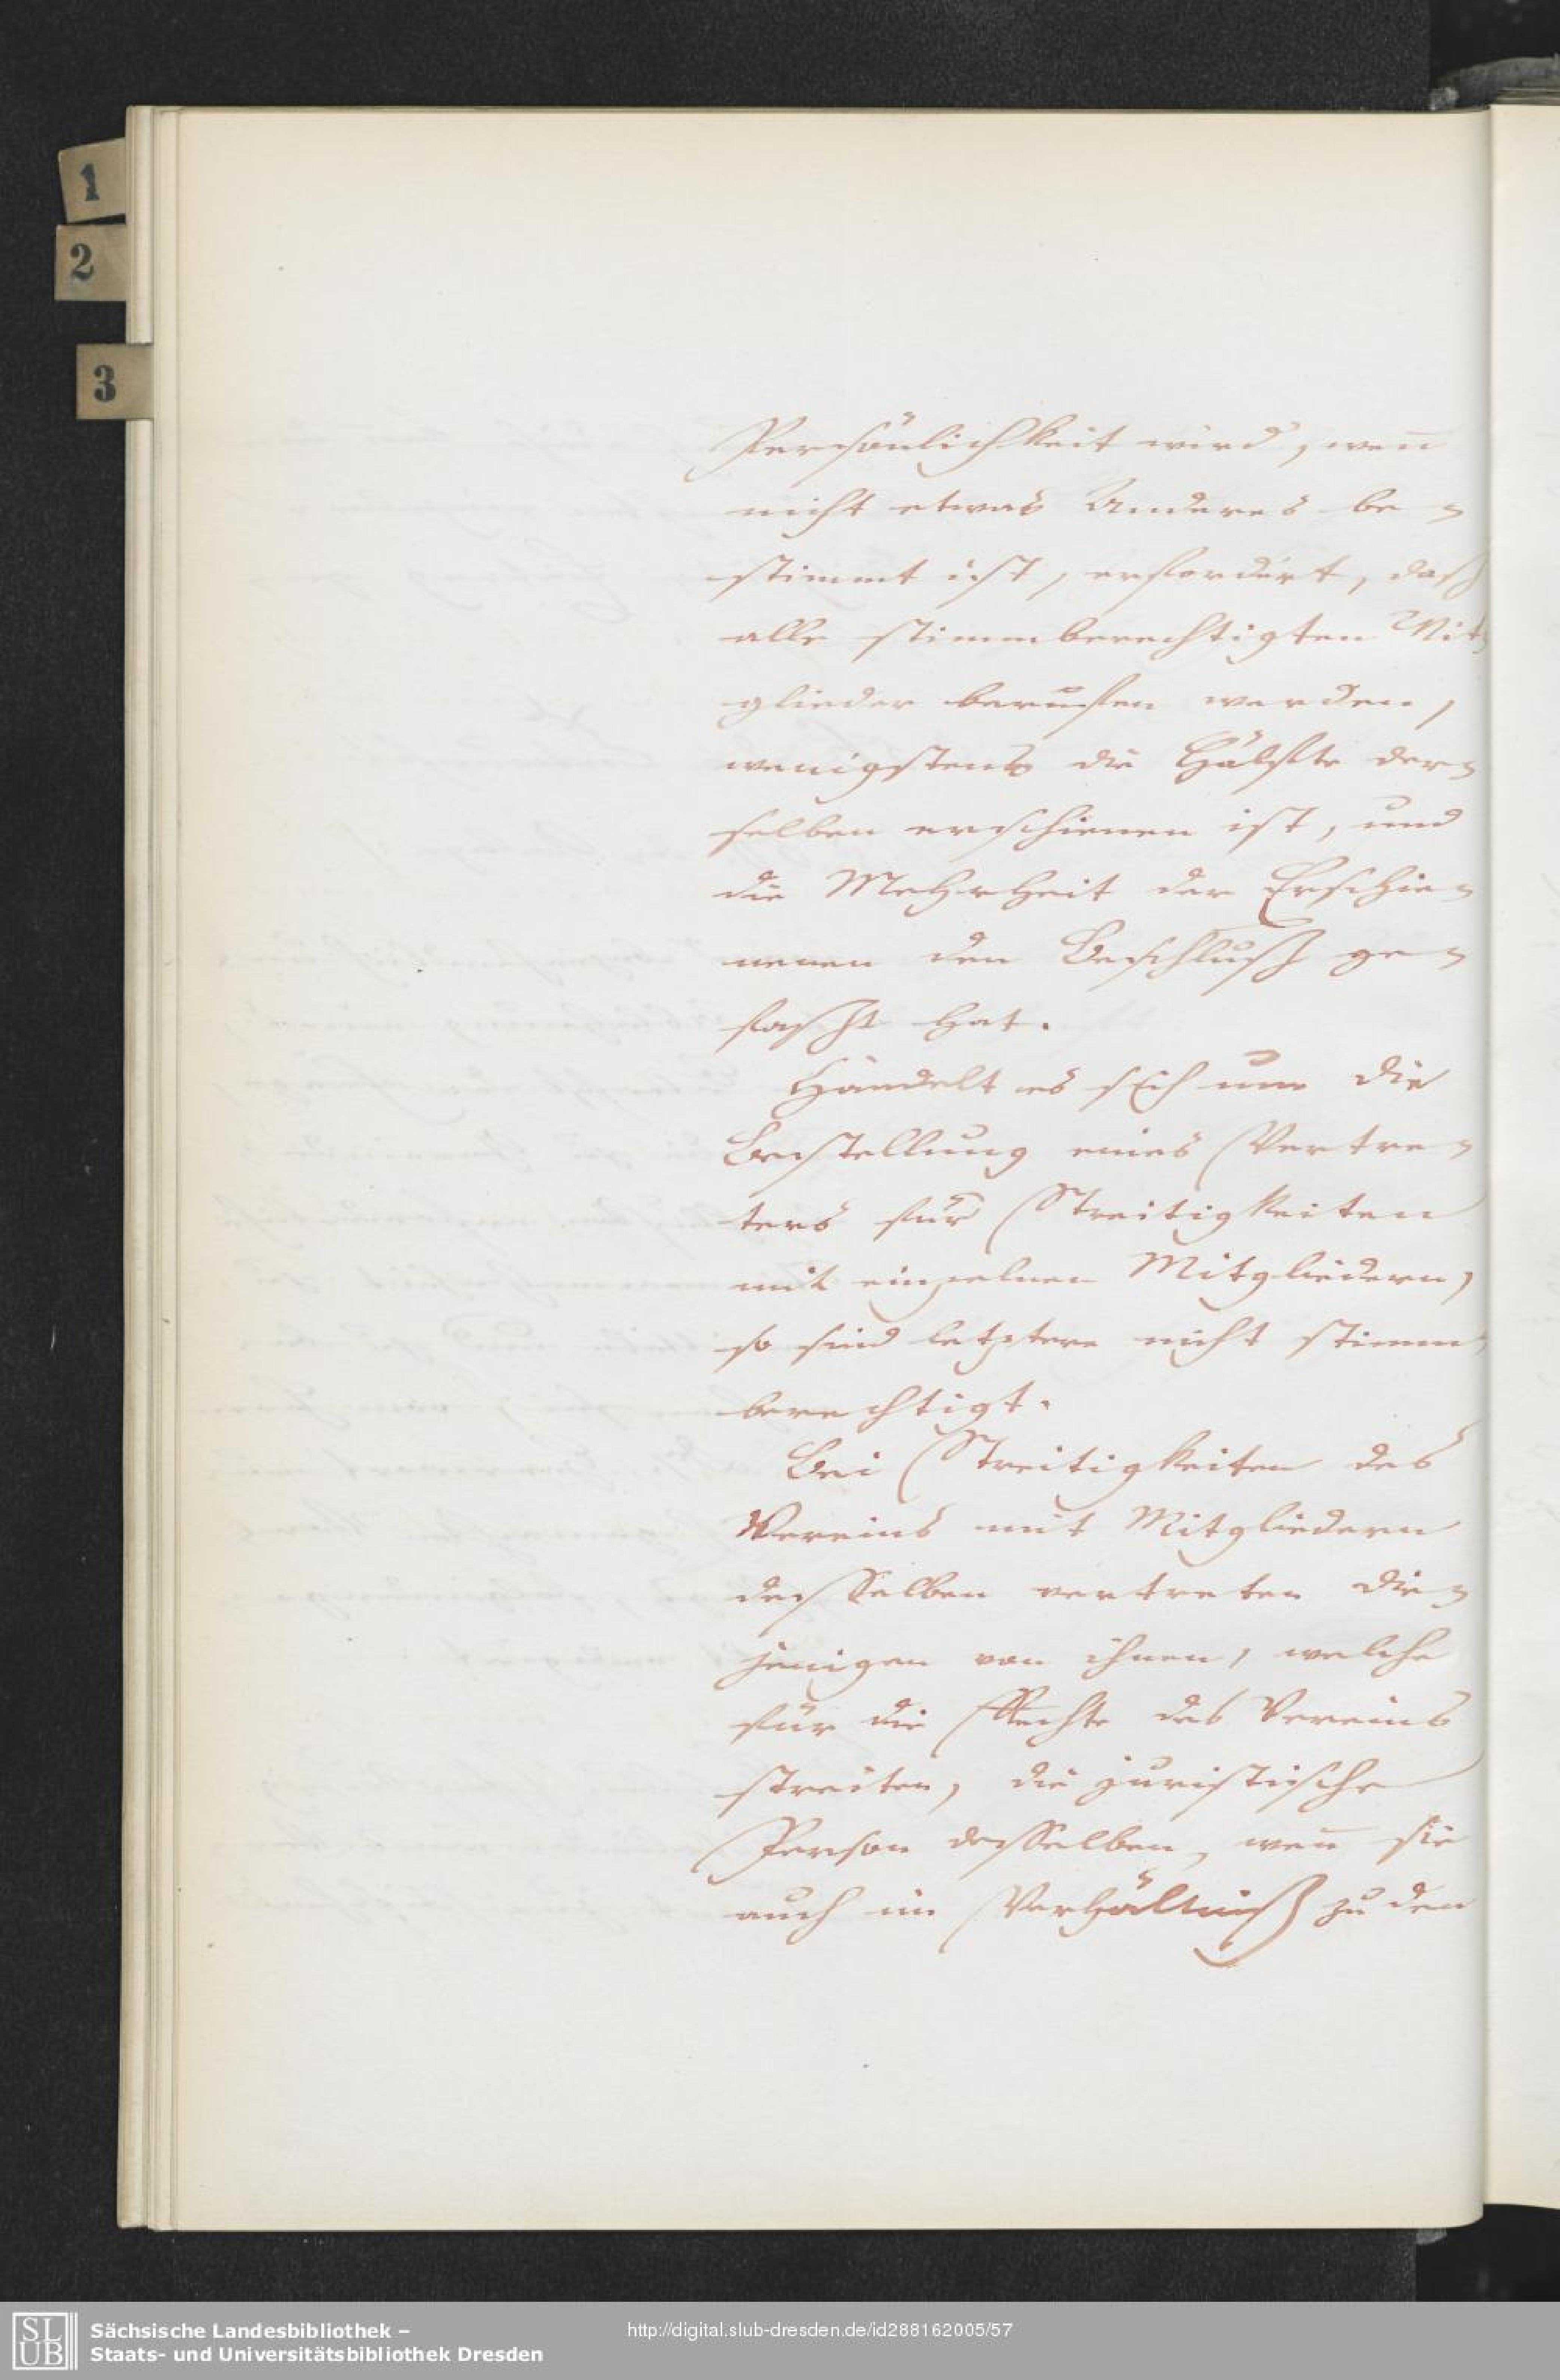 1
2
3
Persönlichkeit wird, wenn
nicht etwas Anderes be-
stimmt ist, erfordert, daß
alle stimmberechtigten Mit-
glieder berufen werden,
wenigstens die Hälfte der-
selben erschienen ist, und
die Mehrheit der Erschie-
nenen den Beschluß ge-
faßt hat.
Handelt es sich um die
Bestellung eines Vertre-
ters für Streitigkeiten
mit einzelnen Mitgliedern,
so sind letztere nicht stimm-
berechtigt.
Bei Streitigkeiten des
Vereins mit Mitgliedern
desselben vertreten die-
jenigen von ihnen, welche
für die Rechte des Vereins
streiten, die juristische
Person desselben, wenn sie
auch im Verhältniß zu den
SLUB
Sächsische Landesbibliothek –
Staats- und Universitätsbibliothek Dresden
http://digital.slub-dresden.de/id288162005/57